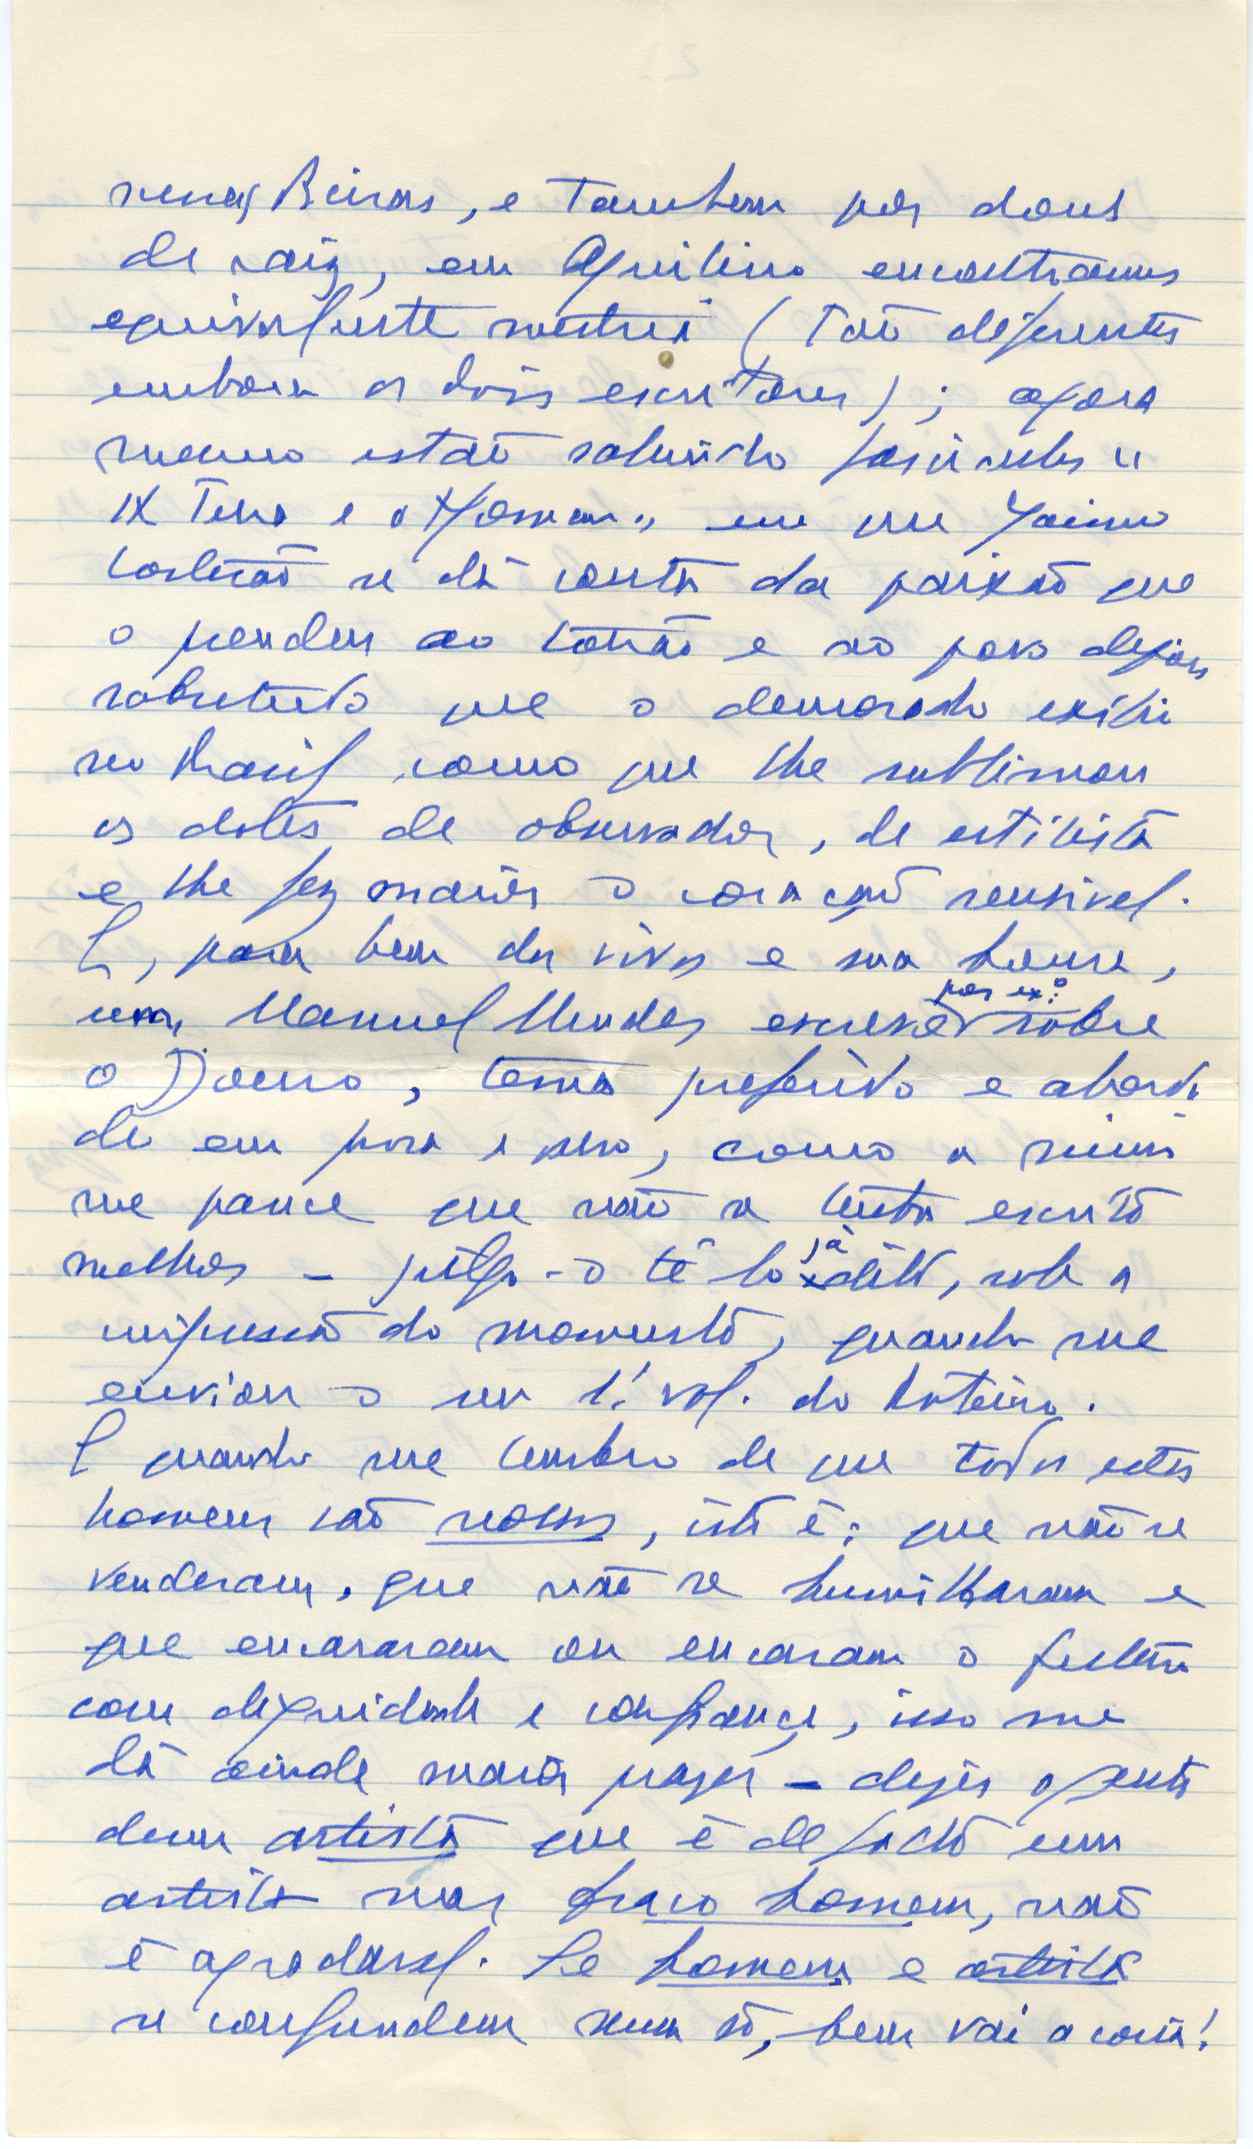 nenas Beiras, e tambem por dons
de raiz, em Aquilino encontramos
equivalente mestria (tão diferentes
embora os dois escritores); agora
mesmo estão sahindo fasciculos "
A Terra e o Homem" em que Jaime
Cortesão se dá conta da paixão que
o prendeu ao torrão e ao povo depois
sobretudo que o demorado exilio
no Brasil como que lhe sublimou
os dotes de observador, de estilista
e lhe fez maior o coração sensivel.
E, para bem dos vivos e sua honra,
um, Manuel Mendes escreve por ex.º sobre
o Douro, tema preferido e aborda
do em prosa e verso, como a mim
me parece que não se tenha escrito
melhor – julgo-o tê-lo já dito, sob a
impressão do momento, quando me
enviou o seu 1.º vol. do Roteiro.
E quando me lembro de que todos estes
homens são nossos, isto é: que não se
venderam, que não se humilharam e
que encararam ou encaram o futuro
com dignidade e confiança, isso me
dá ainda maior prazer – dizer a gente
dum artista que é de facto um
artista mas fraco homem, não
é agradavel. Se homem e artista
se confundem num só, bem vai a coisa!